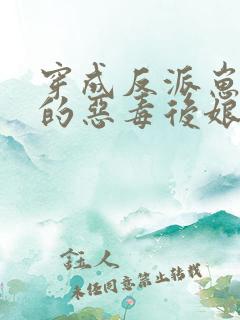 穿成反派崽
的惡毒後娘
鈺人
未经同意禁止转载